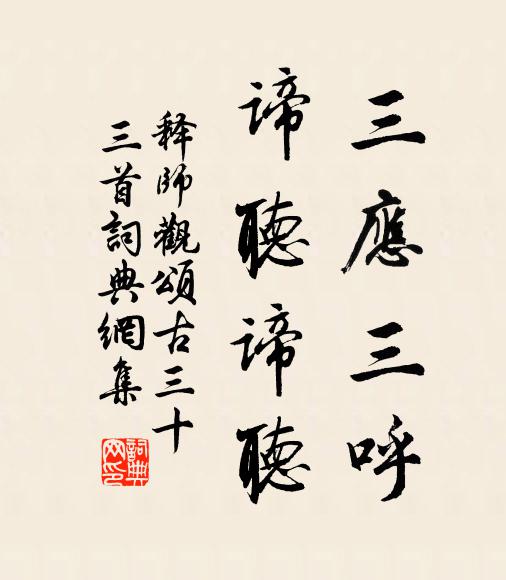 三應三呼
諦聽諦聽
释師觀頌古三十
三首詞典網集
詞典網印